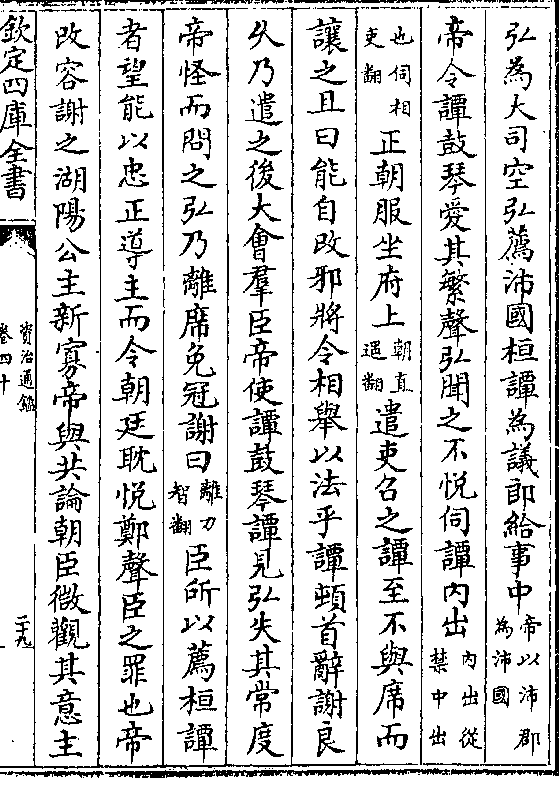 弘為大司空弘薦沛國桓譚為議郎給事中帝以沛郡為沛國
帝令譚鼓琴愛其繁聲弘聞之不悅伺譚内出内出從禁中出
也伺相吏翻正朝服坐府上朝直遥翻遣吏召之譚至不與席而
讓之且曰能自改邪將令相舉以法乎譚頓首辭謝良
久乃遣之後大會羣臣帝使譚鼓琴譚見弘失其常度
帝怪而問之弘乃離席免冠謝曰離力智翻臣所以薦桓譚
者望能以忠正導主而令朝廷耽悅鄭聲臣之罪也帝
改容謝之湖陽公主新寡帝與共論朝臣微觀其意主
欽定四庫全書
資治通鑑
卷四十
二十九